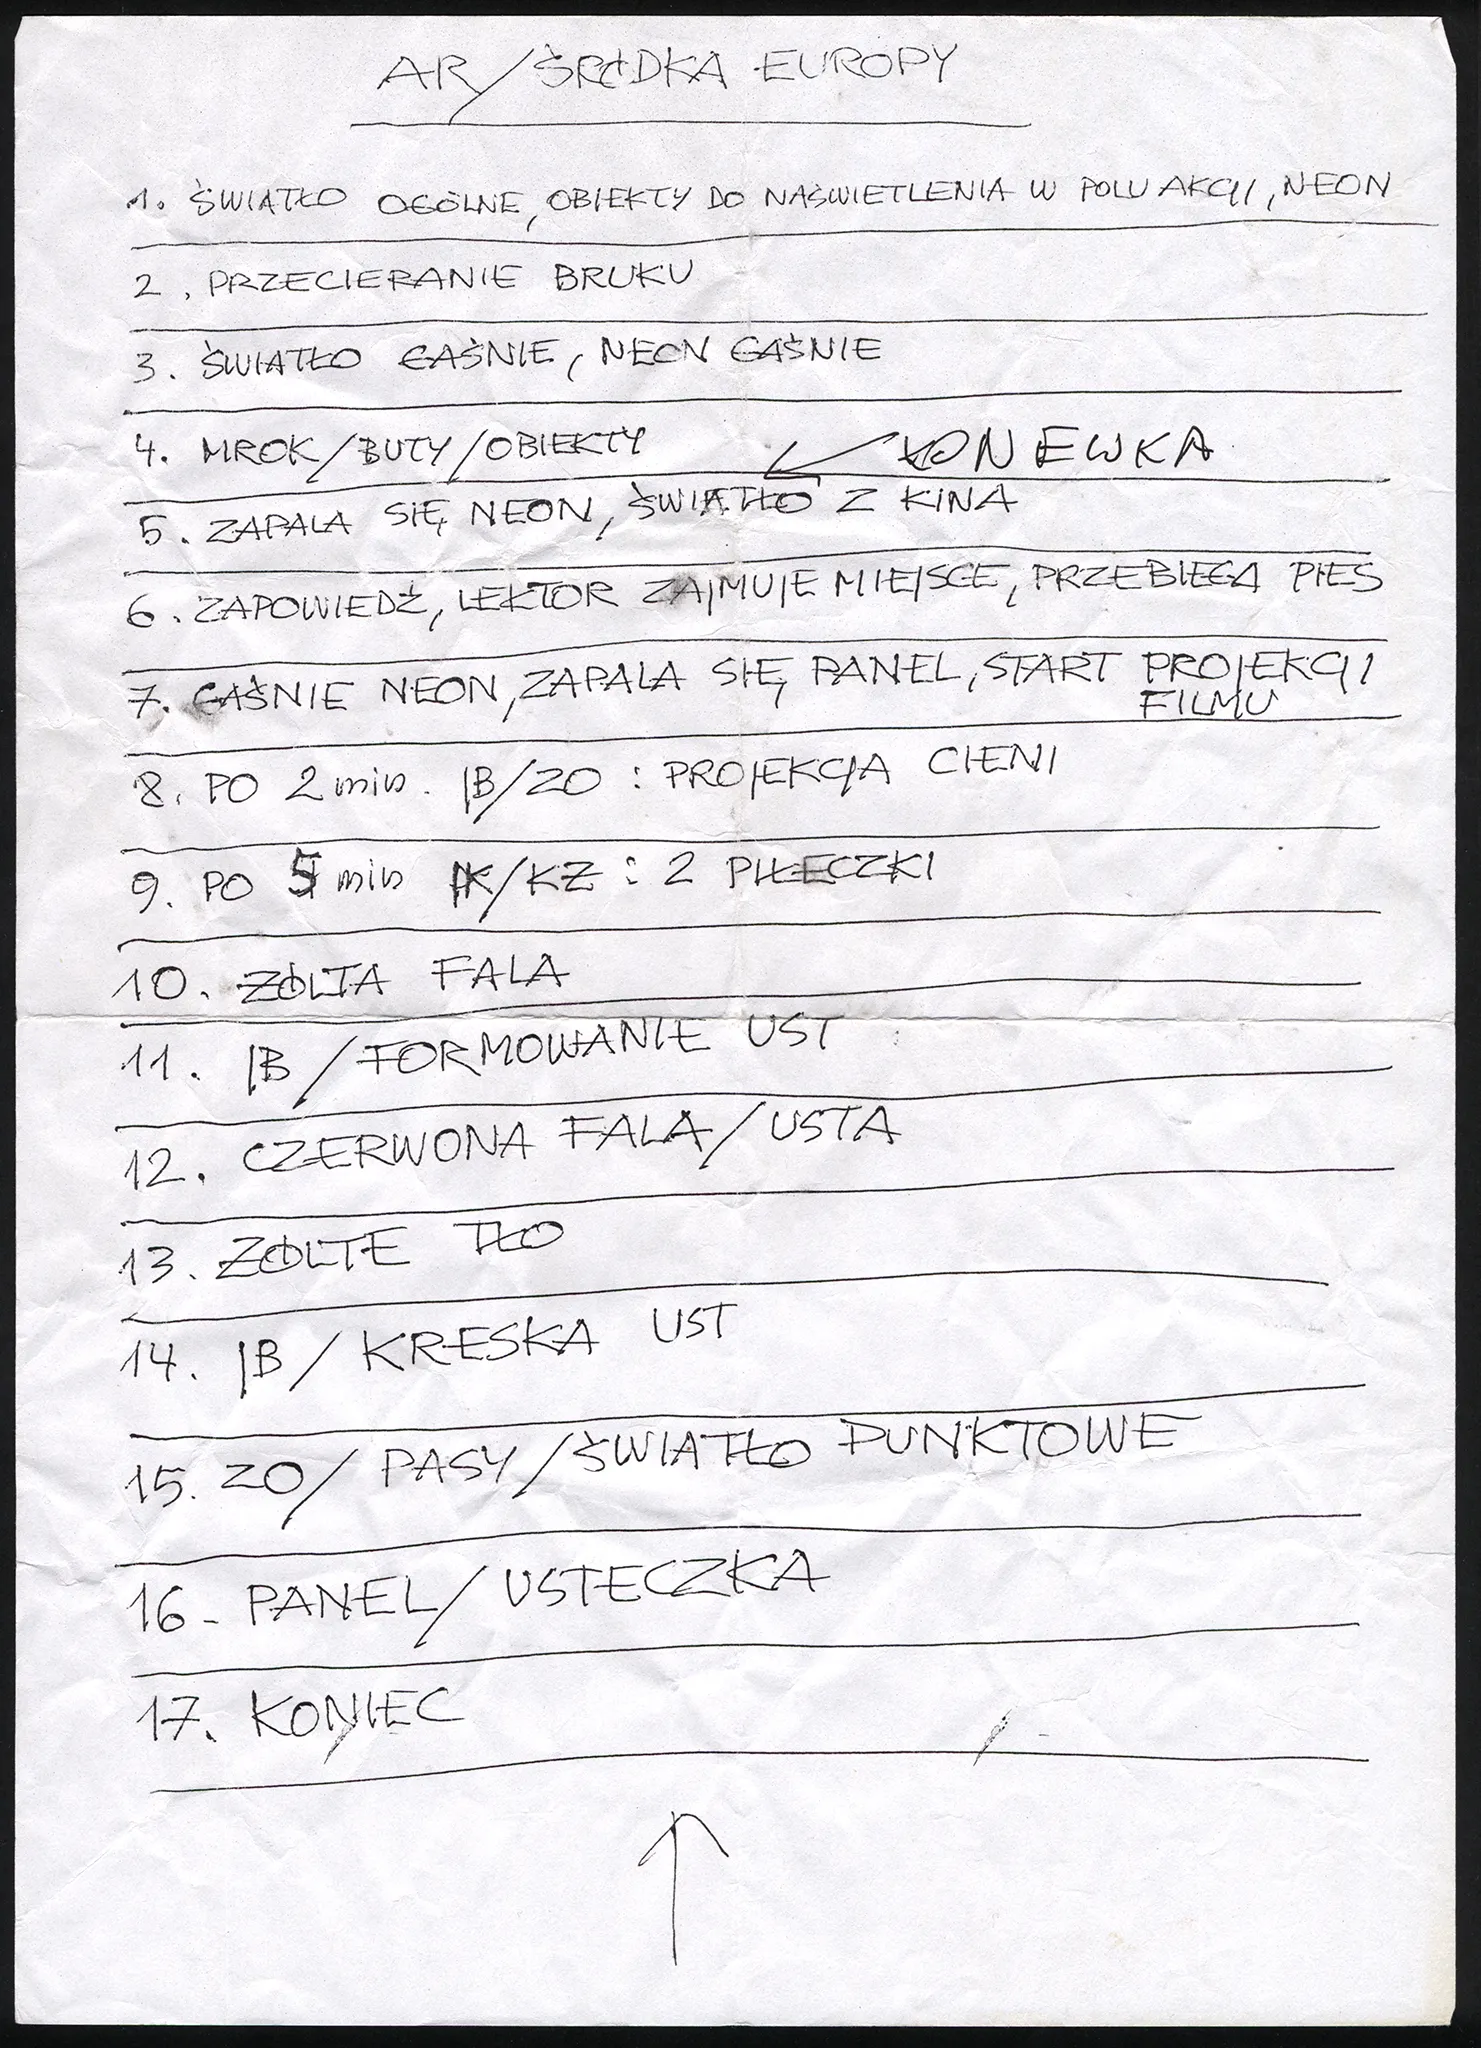 AR/ŚRODKA EUROPY
1. ŚWIATŁO OGÓLNE, OBIEKTY DO NAŚWIETLENIA W POLU AKCJI, NEON
2. PRZECIERANIE BRUKU
3. ŚWIATŁO GAŚNIE, NEON GAŚNIE
4. MROK/BUTY/OBIEKTY KONEWKA
5. ZAPALA SIĘ NEON, ŚWIATŁO Z KINA
6. ZAPOWIEDŹ, LEKTOR ZAJMUJE MIEJSCE, PRZEBIEGA PIES
7. GAŚNIE NEON, ZAPALA SIĘ PANEL, START PROJEKCJI
FILMU
8. PO 2 min. JB/ZO : PROJEKCJA CIENI
9. PO 5 min JK/KZ : 2 PIŁECZKI
10. ŻÓŁTA FALA
11. JB/FORMOWANIE UST
12. CZERWONA FALA/USTA
13. ŻÓŁTE TŁO
14. JB/KRESKA UST
15. ZO/PASY/ŚWIATŁO PUNKTOWE
16- PANEL/USTECZKA
17. KONIEC